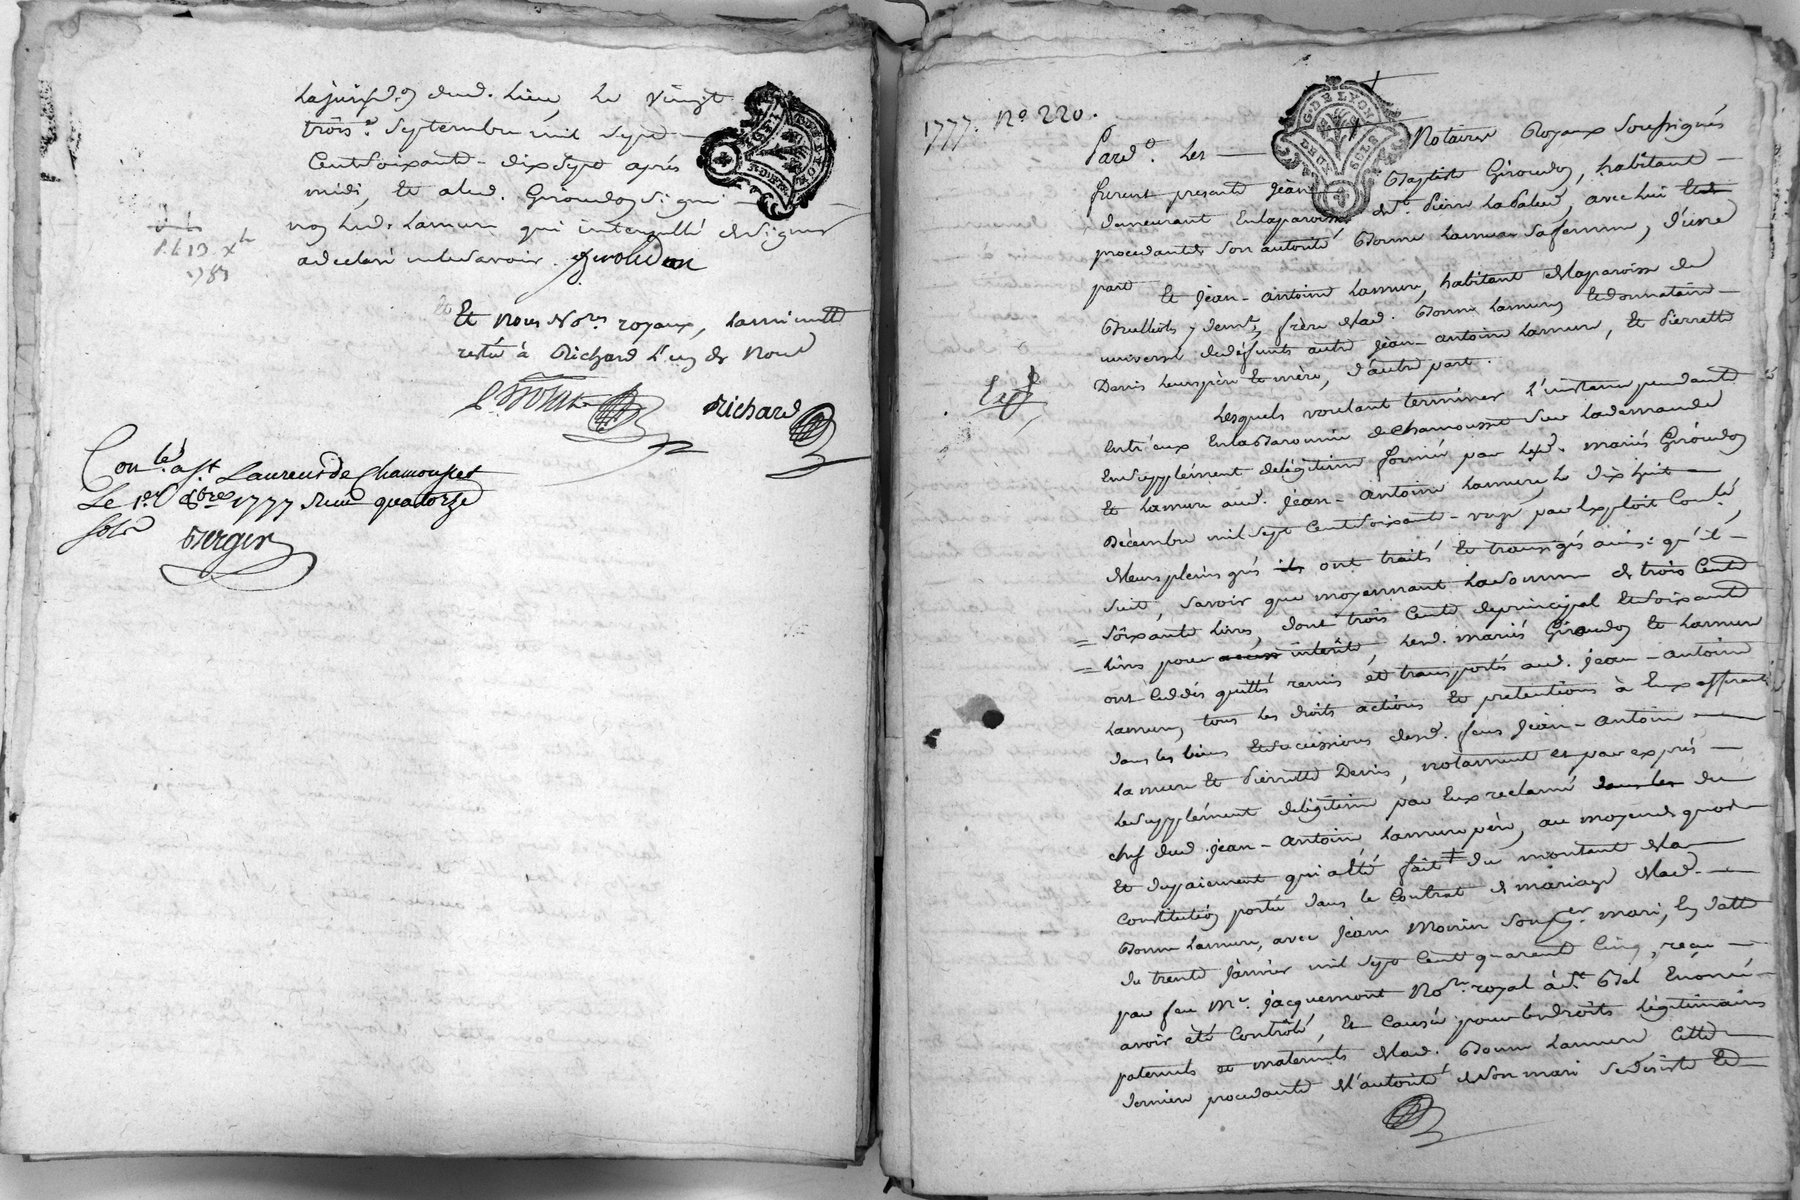 Lajurisd.on dud. Lieu, le vingt
trois.e Septembre mil sept
Cent soixante-dix sept après
midi, Et aled. Giroudon signé
non lad. Lamure qui interpellé de signer
a déclaré ne le savoir. Giroudon
Et Nous No.res royaux, la minutte
restée à Richard L'un de Nous
Richard
Con.lé à S.t Laurent de Chamousset
Le 1.er 8bre 1777 Reçu quatorze
sols
Berger
1777. No. 220.
G. DE LYON
DEUX SOLS
Pard.t Les Notaires Royaux Soussignés
furent présents Jean Baptiste Giroudon, habitant
demeurant En la paroisse de S.t Pierre La Palud, avec lui
procédante de son autorité Bonne Lamure Sa femme, d'une
part Et Jean-Antoine Lamure, habitant de la paroisse de
Brullioles y dem.t, frère de lad. Bonne Lamure, et donnataire
universel de défunts autre Jean-Antoine Lamure, Et Pierrette
Denis Leurs père Et mère, d'autre part.
Lesquels voulant terminer L'instance pendante
entr'eux En la Baronnie de Chamousset Sur La demande
En supplément de légitime formée par lesd. mariés Giroudon
Et Lamure aud. Jean-Antoine Lamure, le dix huit
Décembre mil sept Cent soixante-onze par Exploit Con.lé,
de leurs pleins grés ont traité Et transigés ainsi qu'il
suit, savoir que moyennant La somme de trois Cents
soixante Livres, dont trois Cents de principal Et soixante
Livres pour intérêts, Lesd. mariés Giroudon Et Lamure
ont Cédés quittés remis et transportés aud. Jean-Antoine
Lamure, tous les droits actions Et prétentions à Eux afférants
dans les biens Et successions desd. feus Jean-Antoine
Lamure Et Pierrette Denis, notamment et par exprès
Le supplément de légitime par Eux réclamé du
chef dud. Jean-Antoine Lamure père, au moyen de quoi
Et du paiement qui a été fait du montant de la
Constitution portée dans le Contrat de mariage de lad.
Bonne Lamure, avec Jean Monier Son p.er mari, En datte
du trente Janvier mil sept Cent quarante Cinq, reçu
par feu M.e Jacquemont No.re royal à S.t Bel Enoncé
avoir été Contrôlé, Et Causée pour les droits Légitimaires
paternels et maternels de lad. Bonne Lamure Cette
dernière procédante de l'autorité de Son mari se désiste Et